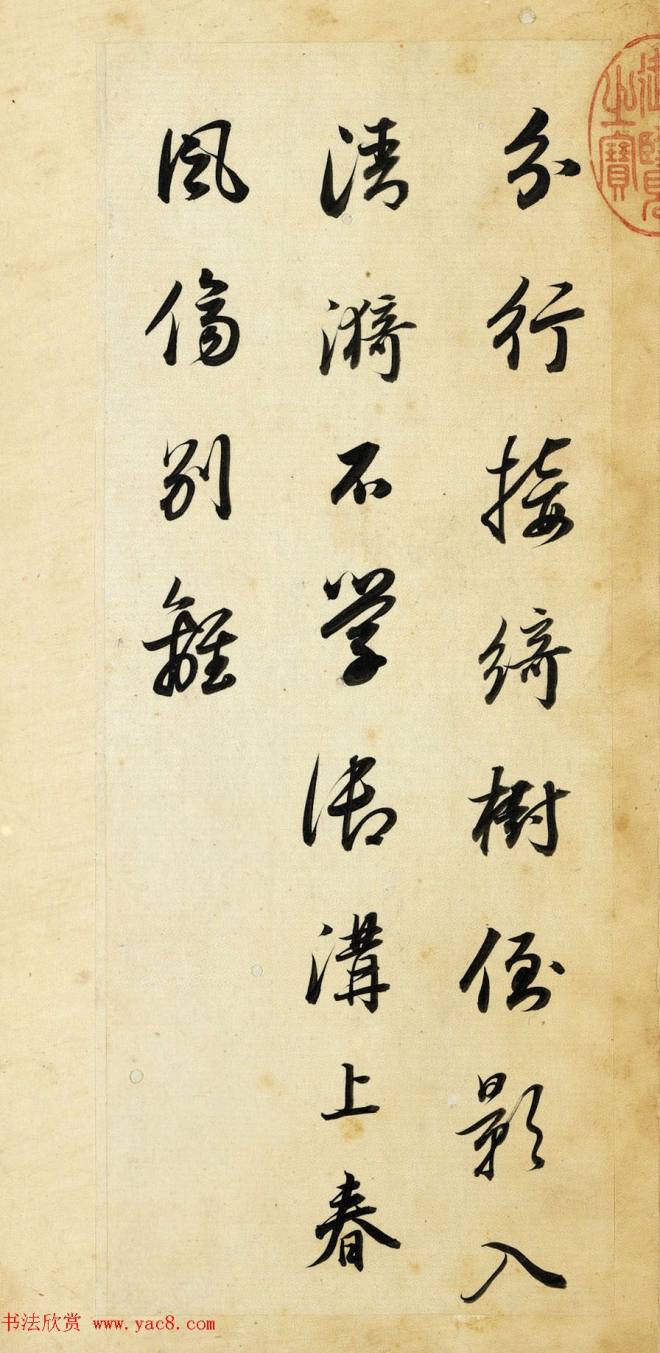 分行接绮樹倒影入
清漪不学御溝上春
風傷别離
御覽之寶
书法欣赏 www.yac8.com